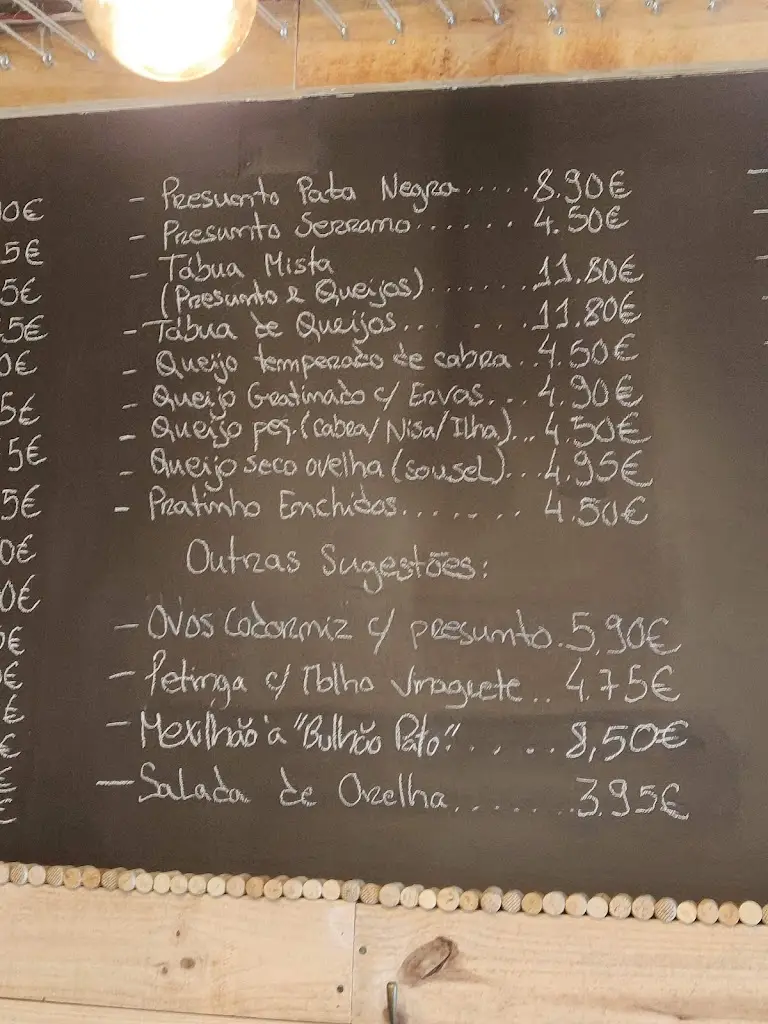 - Presunto Pata Negra.....8.90€
- Presunto Serrano......4.50€
- Tábua Mista
(Presunto e Queijos).......11.80€
- Tábua de Queijos... ....11.80€
- Queijo temperado de cabra..4.50€
- Queijo Gratinado c/ Ervas...4.90€
- Queijo peq.(cabra/Nisa/Ilha)...4,50€
- Queijo seco ovelha (sousel)...4.95€
- Pratinho Enchidos.......4.50€
Outras Sugestões:
- Ovos Codorniz c/ presunto.5,90€
- Petinga c/ Molho Vinagrete..4.75€
- Mexilhão à "Bulhão Pato".....8,50€
- Salada de Orelha.......3.95€
5€
5€
5€
0€
5€
5€
5€
0€
0€